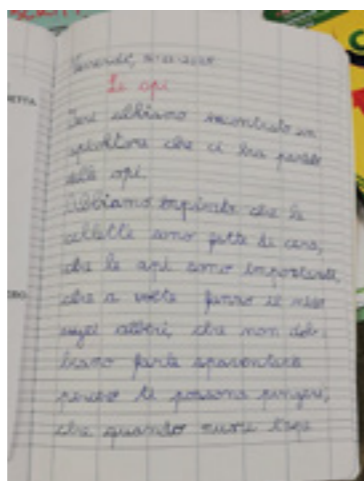 Venerdì,
Le api
Ieri abbiamo incontrato un
apicoltore che ci ha parlato
delle api.
Abbiamo imparato che le
cellette sono fatte di cera,
che le api sono importanti,
che a volte fanno il nido
alberi, che non dob
biamo farle spaventare
perché te possono pungere,
che quando muore l'ape